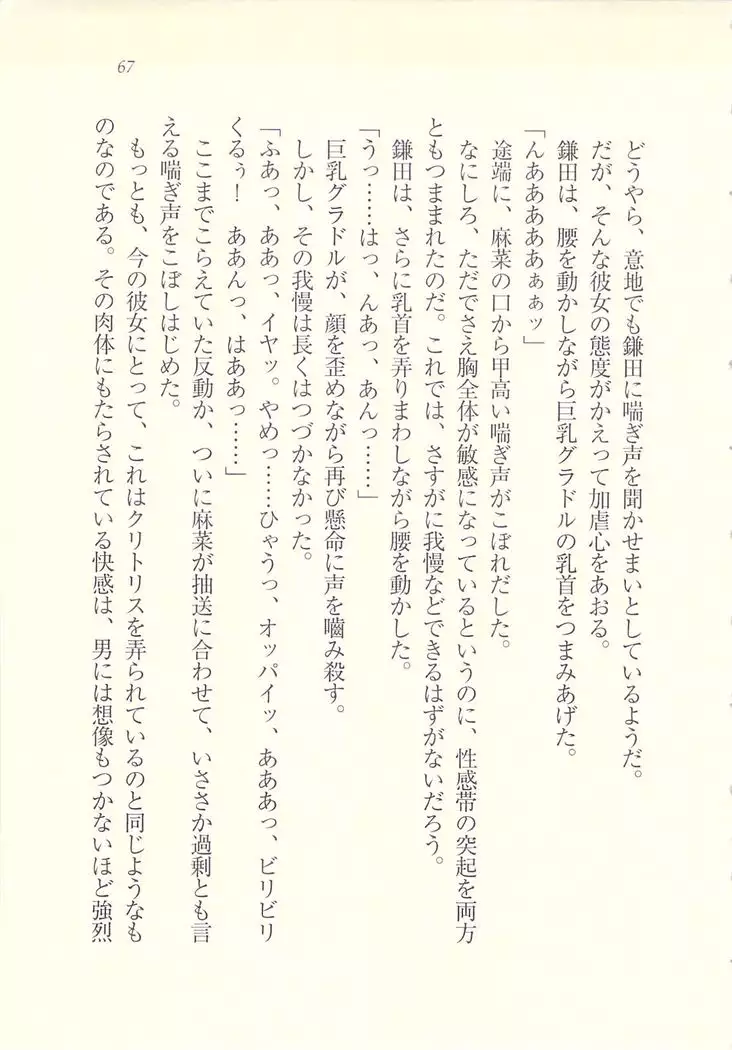 67
どうやら、意地でも鎌田に喘ぎ声を聞かせまいとしているようだ。
だが、そんな彼女の態度がかえって加虐心をあおる。
鎌田は、腰を動かしながら巨乳グラドルの乳首をつまみあげた。
「んあああああぁぁッ」
途端に、麻菜の口から甲高い喘ぎ声がこぼれだした。
なにしろ、ただでさえ胸全体が敏感になっているというのに、性感帯の突起を両方
ともつままれたのだ。これでは、さすがに我慢などできるはずがないだろう。
鎌田は、さらに乳首を弄りまわしながら腰を動かした。
「うっ……はっ、んあっ、あんっ……」
巨乳グラドルが、顔を歪めながら再び懸命に声を嚙み殺す。
しかし、その我慢は長くはつづかなかった。
「ふあっ、ああっ、イヤッ。やめっ……ひゃうっ、オッパイッ、あああっ、ビリビリ
くるぅ！　ああんっ、はああっ……」
ここまでこらえていた反動か、ついに麻菜が抽送に合わせて、いささか過剰とも言
える喘ぎ声をこぼしはじめた。
もっとも、今の彼女にとって、これはクリトリスを弄られているのと同じようなも
のなのである。その肉体にもたらされている快感は、男には想像もつかないほど強烈